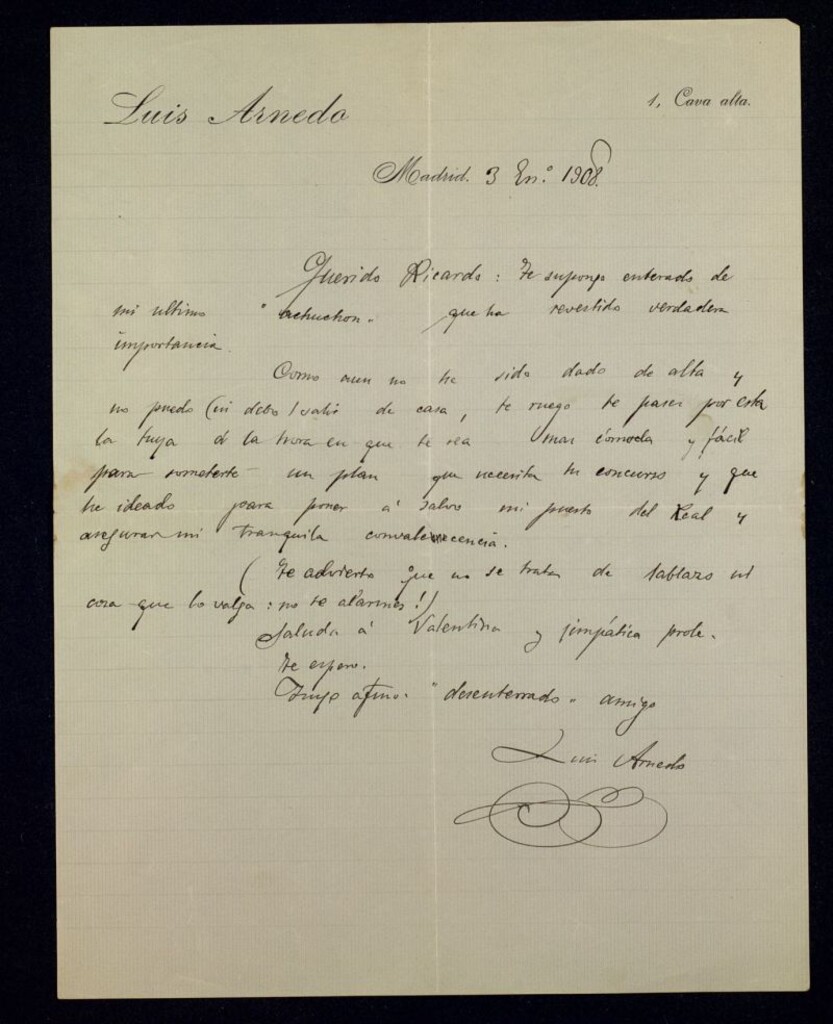 Luis Arnedo
1, Cava alta.
Madrid. 3 En.º 1908.
Querido Ricardo: Te supongo enterado de
mi ultimo "achuchon" que ha revestido verdadera
importancia.
Como aun no he sido dado de alta y
no puedo (ni debo) salir de casa, te ruego te pases por esta
la tuya á la hora en que te sea mas cómoda y fácil
para someterte un plan que necesita tu concurso y que
he ideado para poner á salvo mi puesto del Real y
asegurar mi tranquila convalecencia.
(Te advierto que no se trata de sablazo ni
cosa que lo valga: no te alarmes!)
Saluda á Valentina y simpática prole.
Te espero.
Tuyo afmo. "desenterrado" amigo
Luis Arnedo